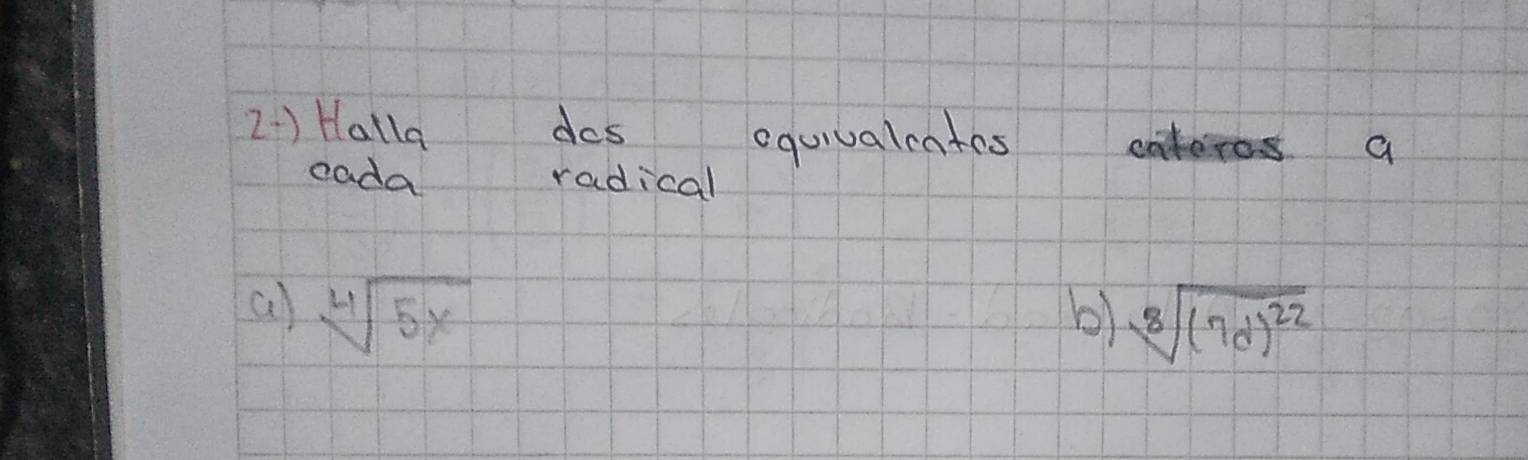 2-) Halla dos equivalentes enteros a
cada radical
a) ∜5x b) ⁸√(7d)²²